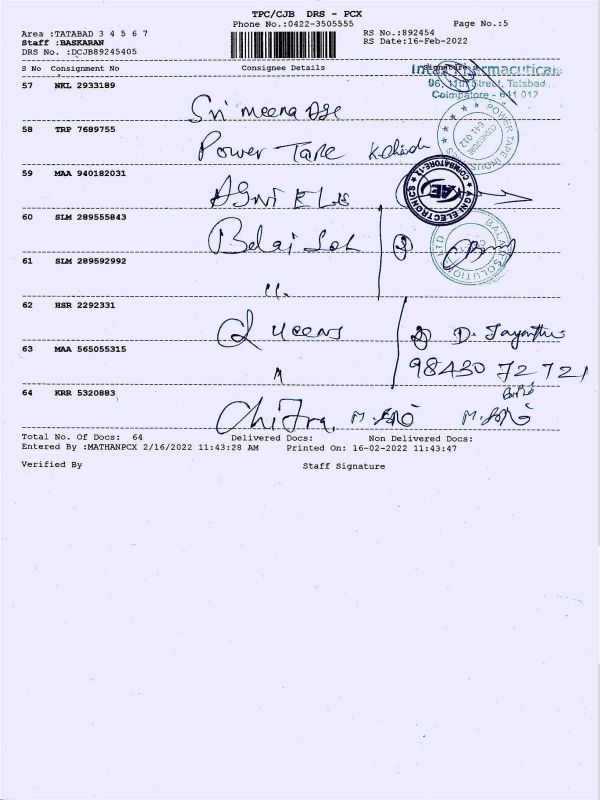 TPC/CJB DRS - PCX
Phone No.:0422-3505555
Page No.:5
Area :TATABAD 3 4 5 6 7
RS No.:892454
Staff :BASKARAN
RS Date:16-Feb-2022
DRS No. :DCJB89245405
S No Consignment No Consignee Details Signature
96, 11th Street, Tatabad,
Coimbatore - 641 012
57 NKL 2933189
Sri meena
58 TRP 7689755
Power Tape
POWER TAPE INDUS
COIMBATORE
641 012
59 MAA 940182031
AGNI ELE
AGNI ELECTRONICS
COIMBATORE-12
AE
60 SLM 289555843
Balaji Sol
BALAJI SOLUTION
LTD
61 SLM 289592992
"
62 HSR 2292331
Queens
D. Jayanthi
63 MAA 565055315
"
98430 72721
64 KRR 5320883
Chitra,
Total No. Of Docs: 64 Delivered Docs: Non Delivered Docs:
Entered By :MATHANPCX 2/16/2022 11:43:28 AM Printed On: 16-02-2022 11:43:47
Verified By Staff Signature